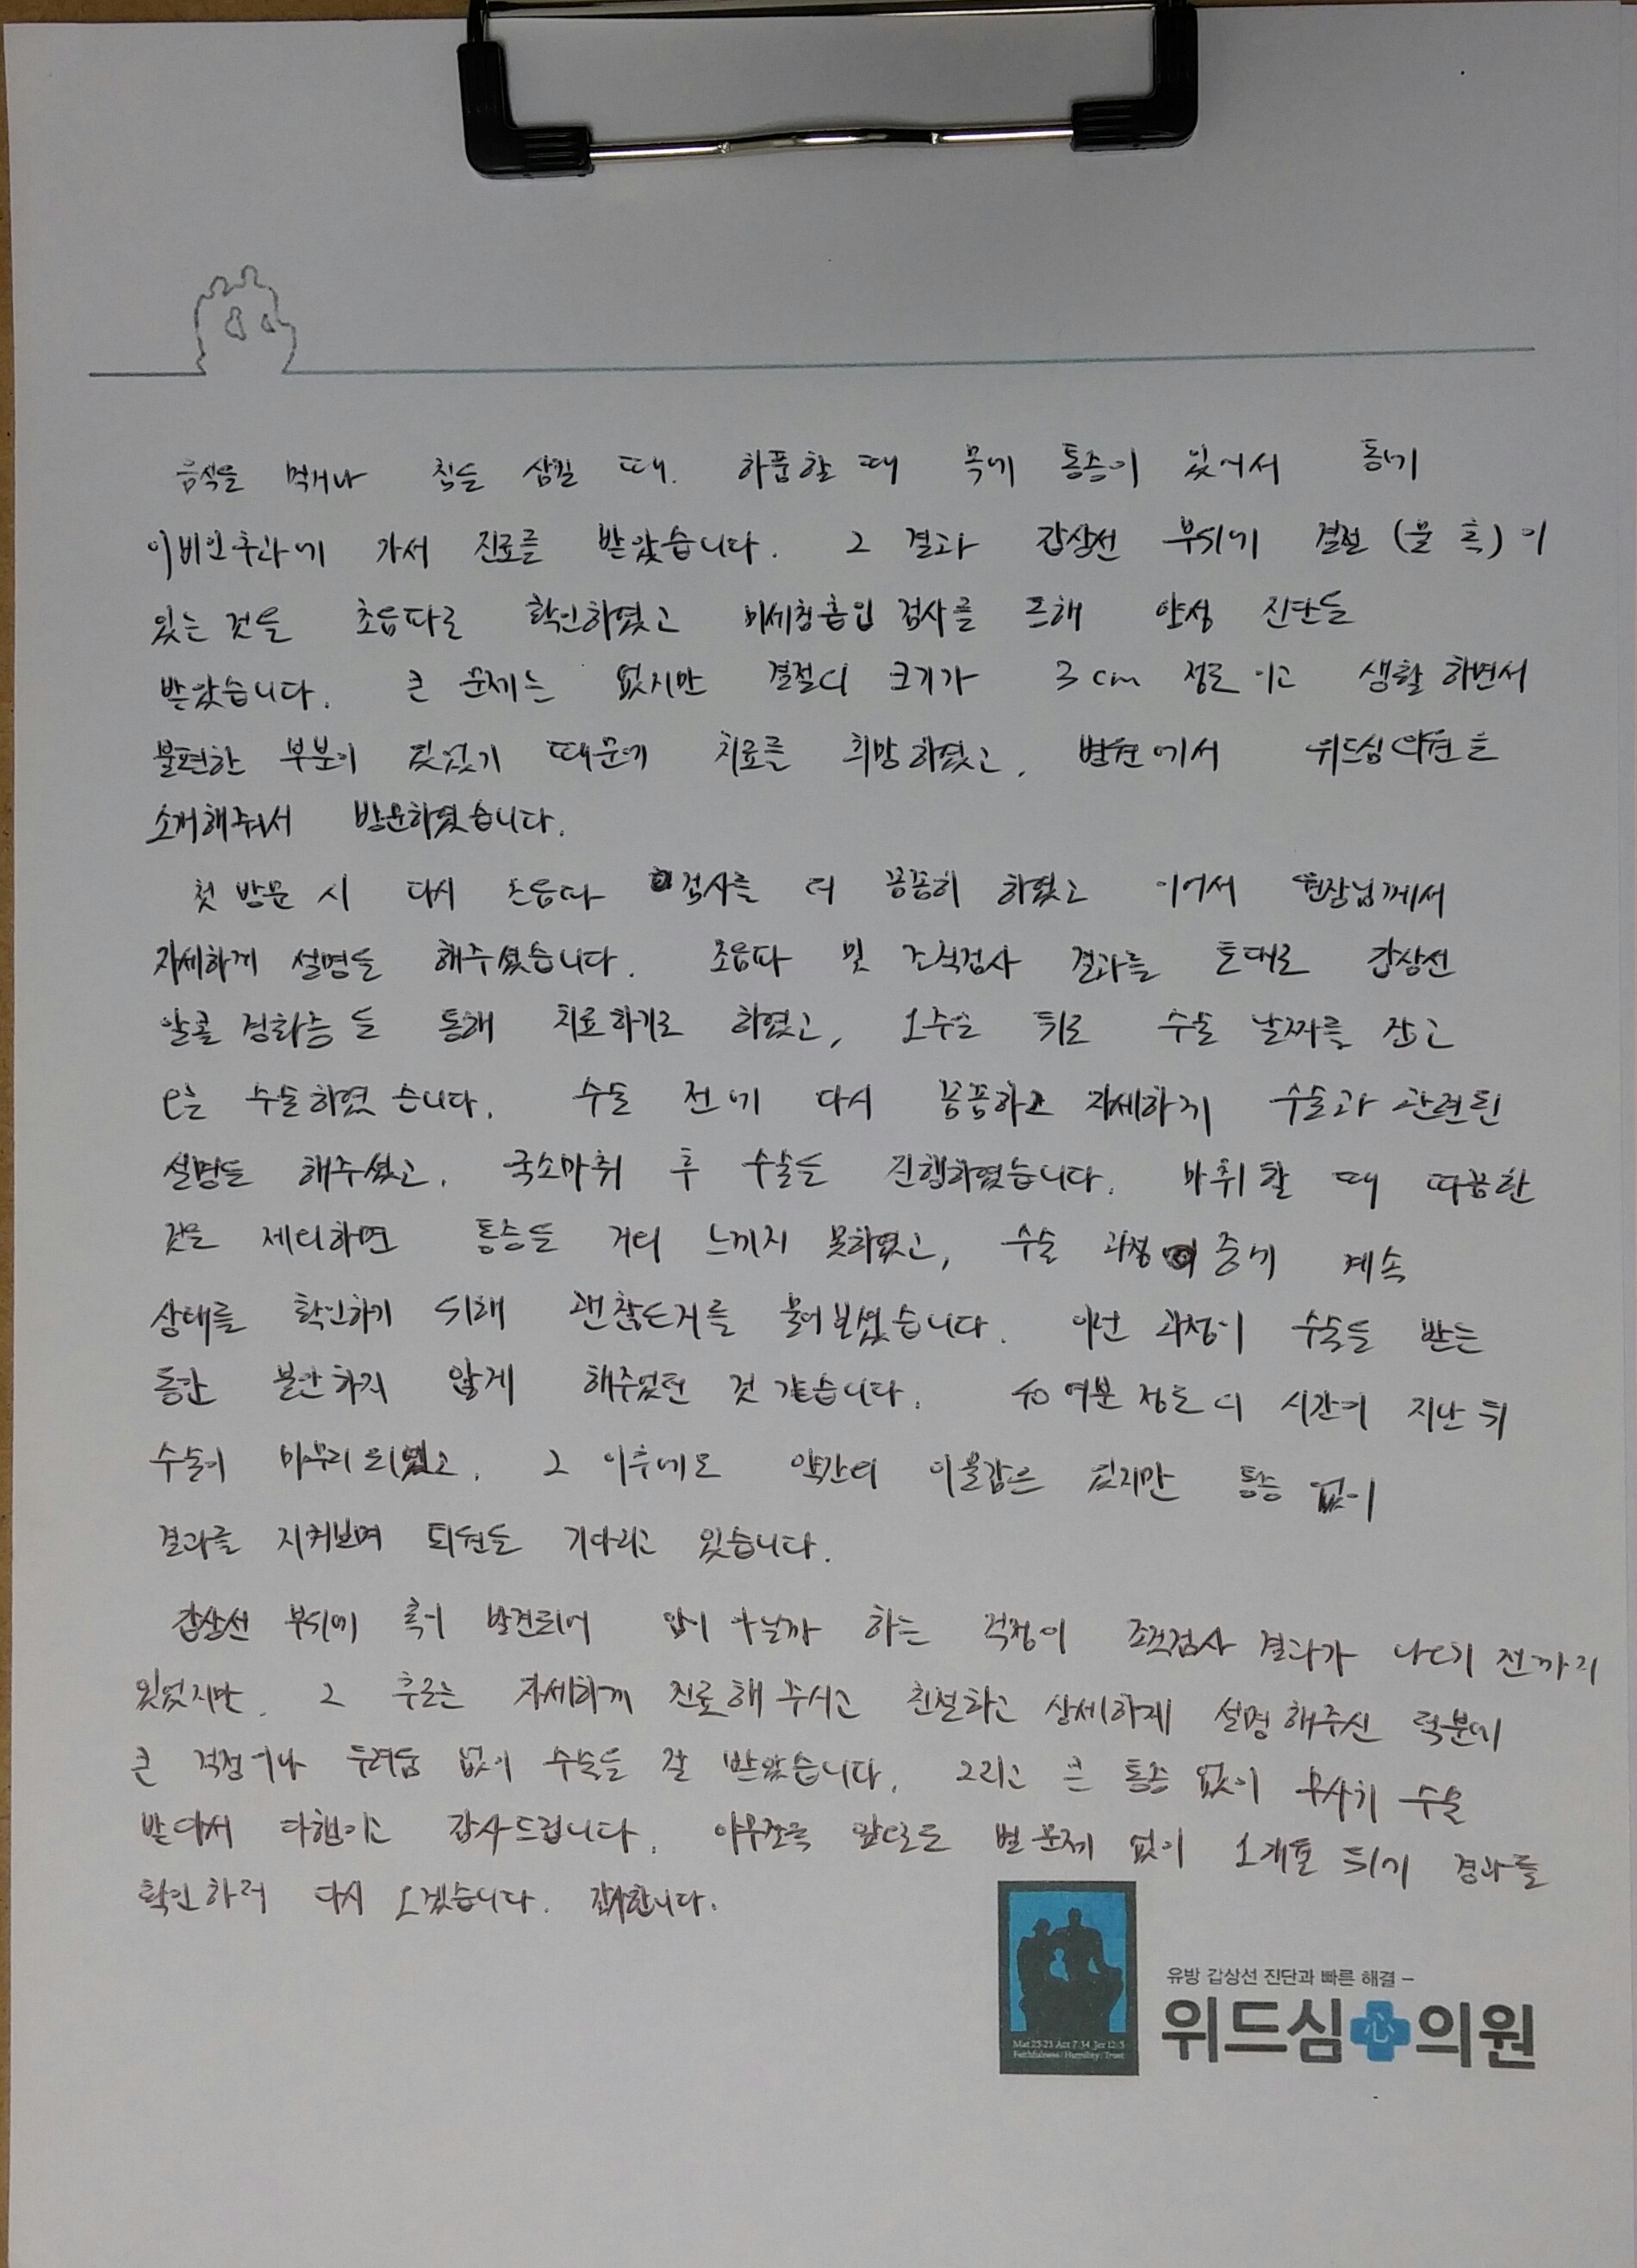 음식을 먹거나 침을 삼킬 때. 하품할 때 목에 통증이 있어서 동네
이비인후과에 가서 진료를 받았습니다. 그 결과 갑상선 부위에 결절 (물 혹) 이
있는 것을 초음파로 확인하였고 미세침흡입 검사를 통해 양성 진단을
받았습니다. 큰 문제는 없지만 결절의 크기가 3cm 정도 이고 생활 하면서
불편한 부분이 있었기 때문에 치료를 희망하였고, 병원에서 위드심의원을
소개해줘서 방문하였습니다.
첫 방문 시 다시 초음파 검사를 더 꼼꼼히 하였고 이어서 원장님께서
자세하게 설명을 해주셨습니다. 초음파 및 조직검사 결과를 토대로 갑상선
알콜 경화술을 통해 치료하기로 하였고, 1주일 뒤로 수술 날짜를 잡고
오늘 수술하였습니다. 수술 전에 다시 꼼꼼하고 자세하게 수술과 관련된
설명을 해주셨고. 국소마취 후 수술을 진행하였습니다. 마취할 때 따끔한
것을 제외하면 통증을 거의 느끼지 못하였고, 수술 과정 중에 계속
상태를 확인하기 위해 괜찮은지를 물어보셨습니다. 이런 과정이 수술을 받는
동안 불안하지 않게 해주었던 것 같습니다. 40여분 정도의 시간이 지난 뒤
수술이 마무리 되었고. 그 이후에도 약간의 이물감은 있지만 통증 없이
결과를 지켜보며 퇴원을 기다리고 있습니다.
갑상선 부위에 혹이 발견되어 암이 아닐까 하는 걱정이 조직검사 결과가 나오기 전까지
있었지만. 그 후로는 자세하게 진료해 주시고 친절하고 상세하게 설명해주신 덕분에
큰 걱정이나 두려움 없이 수술을 잘 받았습니다. 그리고 큰 통증 없이 무사히 수술
받아서 다행이고 감사드립니다. 아무쪼록 앞으로도 별 문제 없이 1개월 뒤에 경과를
확인하러 다시 오겠습니다. 감사합니다.
Mat 25:23 Act 7:34 Jer 12:5
Faithfulness / Humility / Trust
유방 갑상선 진단과 빠른 해결 –
위드심 心 의원